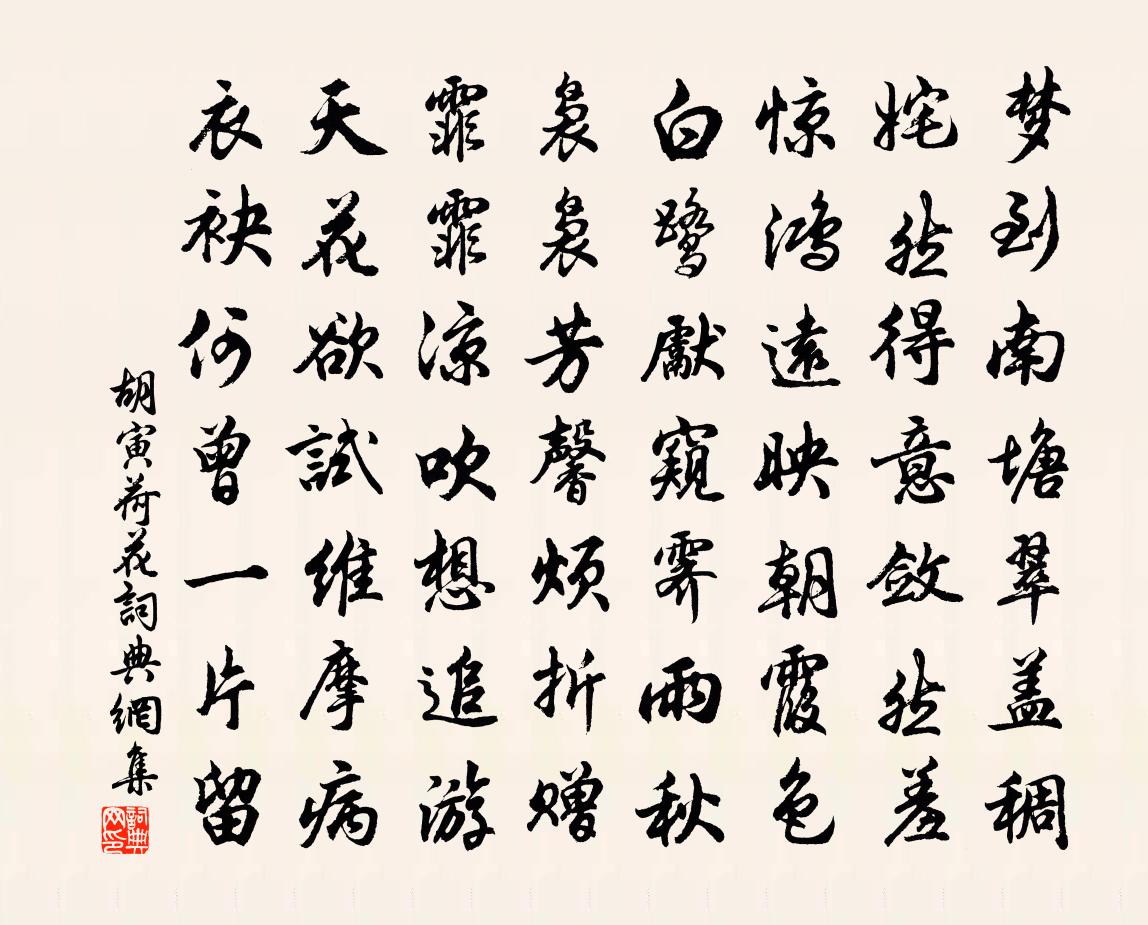 梦到南塘翠盖稠
姹然得意敛然羞
惊鸿遠映朝霞色
白鷺獻窺霁雨秋
袅袅芳馨烦折赠
霏霏凉吹想追游
天花欲試维摩病
衣袂何曾一片留
胡寅荷花詞典網集
詞典